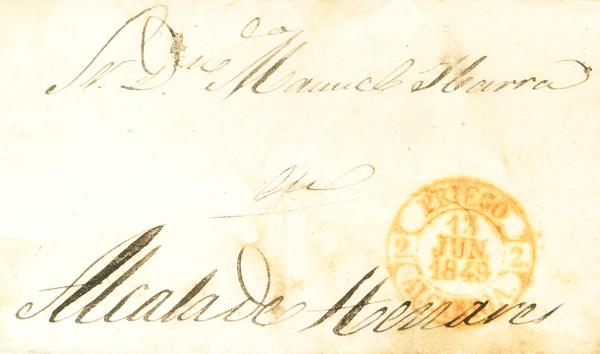 Sr. D. Manuel Ibarra
en
Alcala de Henares
PRIEGO
13
JUN
1849
2 2